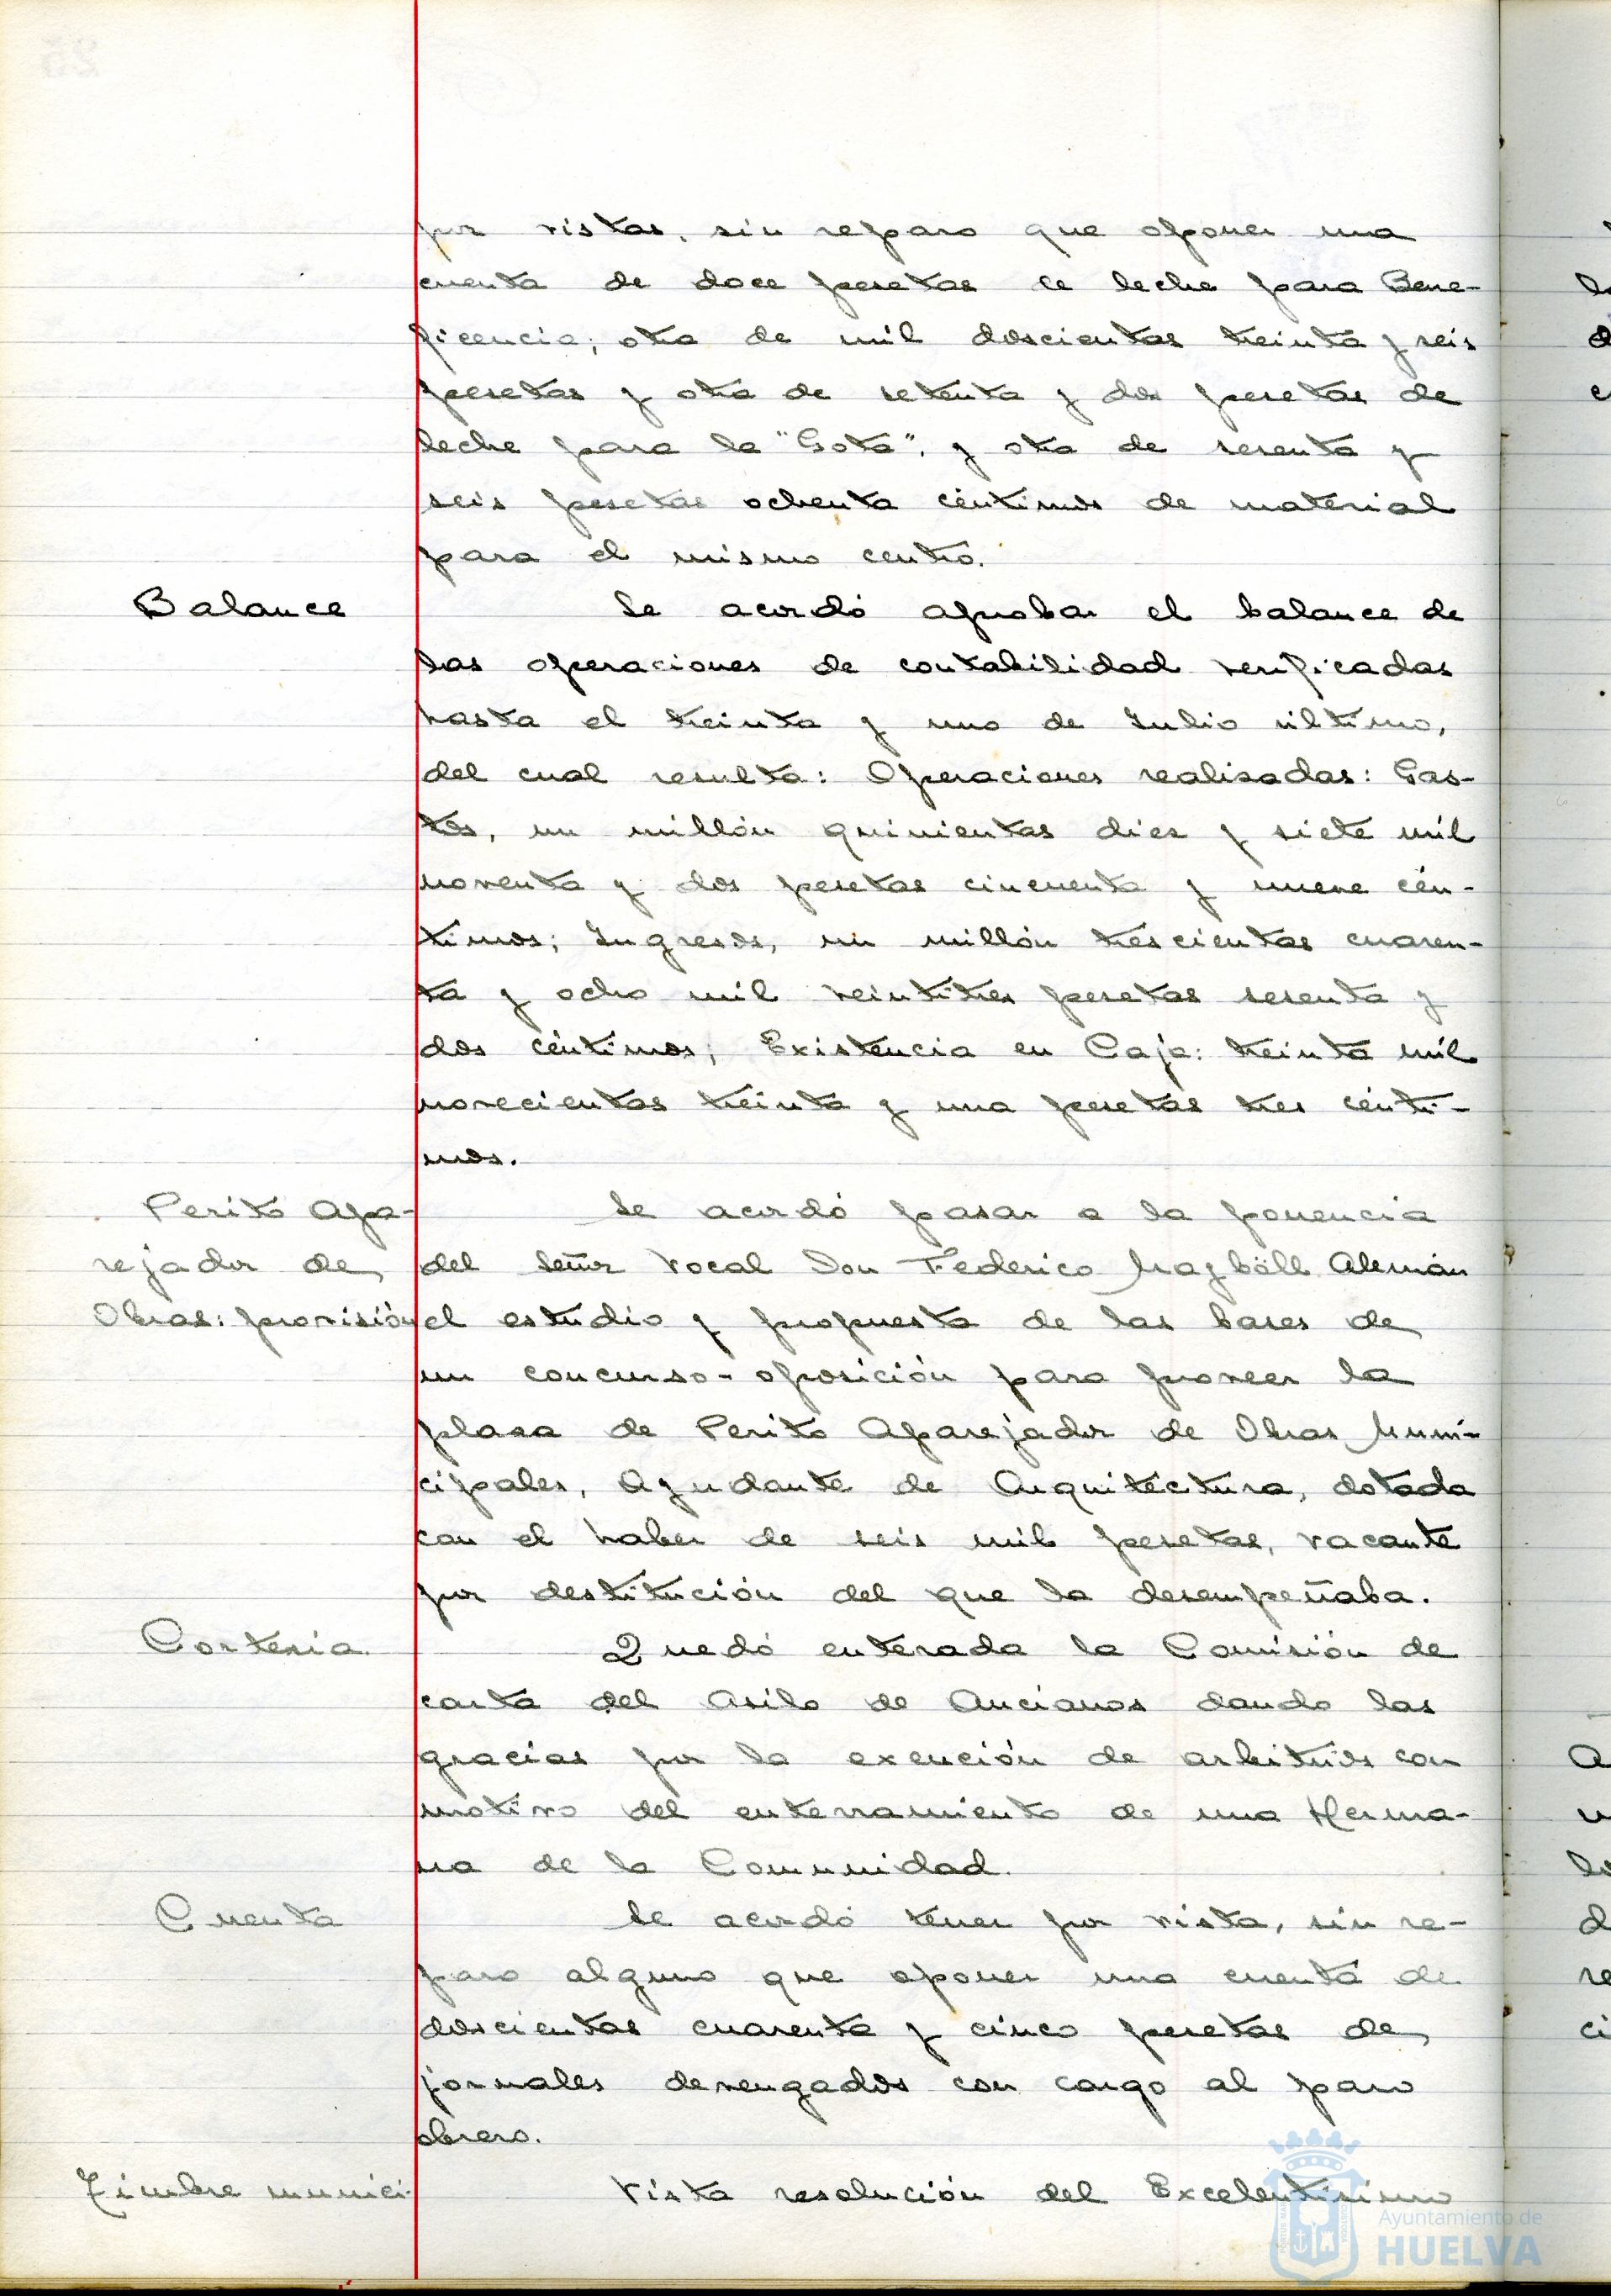 por vistas, sin reparo que oponer una
cuenta de doce pesetas de leche para Bene-
ficencia; otra de mil doscientas treinta y seis
pesetas y otra de setenta y dos pesetas de
leche para la "Gota", y otra de sesenta y
seis pesetas ochenta céntimos de material
para el mismo centro.
Balance
Se acordó aprobar el balance de
las operaciones de contabilidad verificadas
hasta el treinta y uno de Julio último,
del cual resulta: Operaciones realizadas: Gas-
tos, un millón quinientas diez y siete mil
noventa y dos pesetas cincuenta y nueve cén-
timos; Ingresos, un millón trescientas cuaren-
ta y ocho mil veintitres pesetas sesenta y
dos céntimos; Existencia en Caja: treinta mil
novecientas treinta y una pesetas tres cénti-
mos.
Perito Apa-
rejador de
Obras: provisión
Se acordó pasar a la ponencia
del Señor Vocal Don Federico Mayböll Alemán
el estudio y propuesta de las bases de
un concurso-oposición para proveer la
plaza de Perito Aparejador de Obras Muni-
cipales, Ayudante de Arquitectura, dotada
con el haber de seis mil pesetas, vacante
por destitución del que la desempeñaba.
Cortesia
Quedó enterada la Comisión de
carta del Asilo de Ancianos dando las
gracias por la exención de arbitrios con
motivo del enterramiento de una Herma-
na de la Comunidad.
Cuenta
Se acordó tener por vista, sin re-
paro alguno que oponer una cuenta de
doscientas cuarenta y cinco pesetas de
jornales devengados con cargo al paro
obrero.
Timbre munici-
Vista resolución del Excelentísimo
Ayuntamiento de
HUELVA